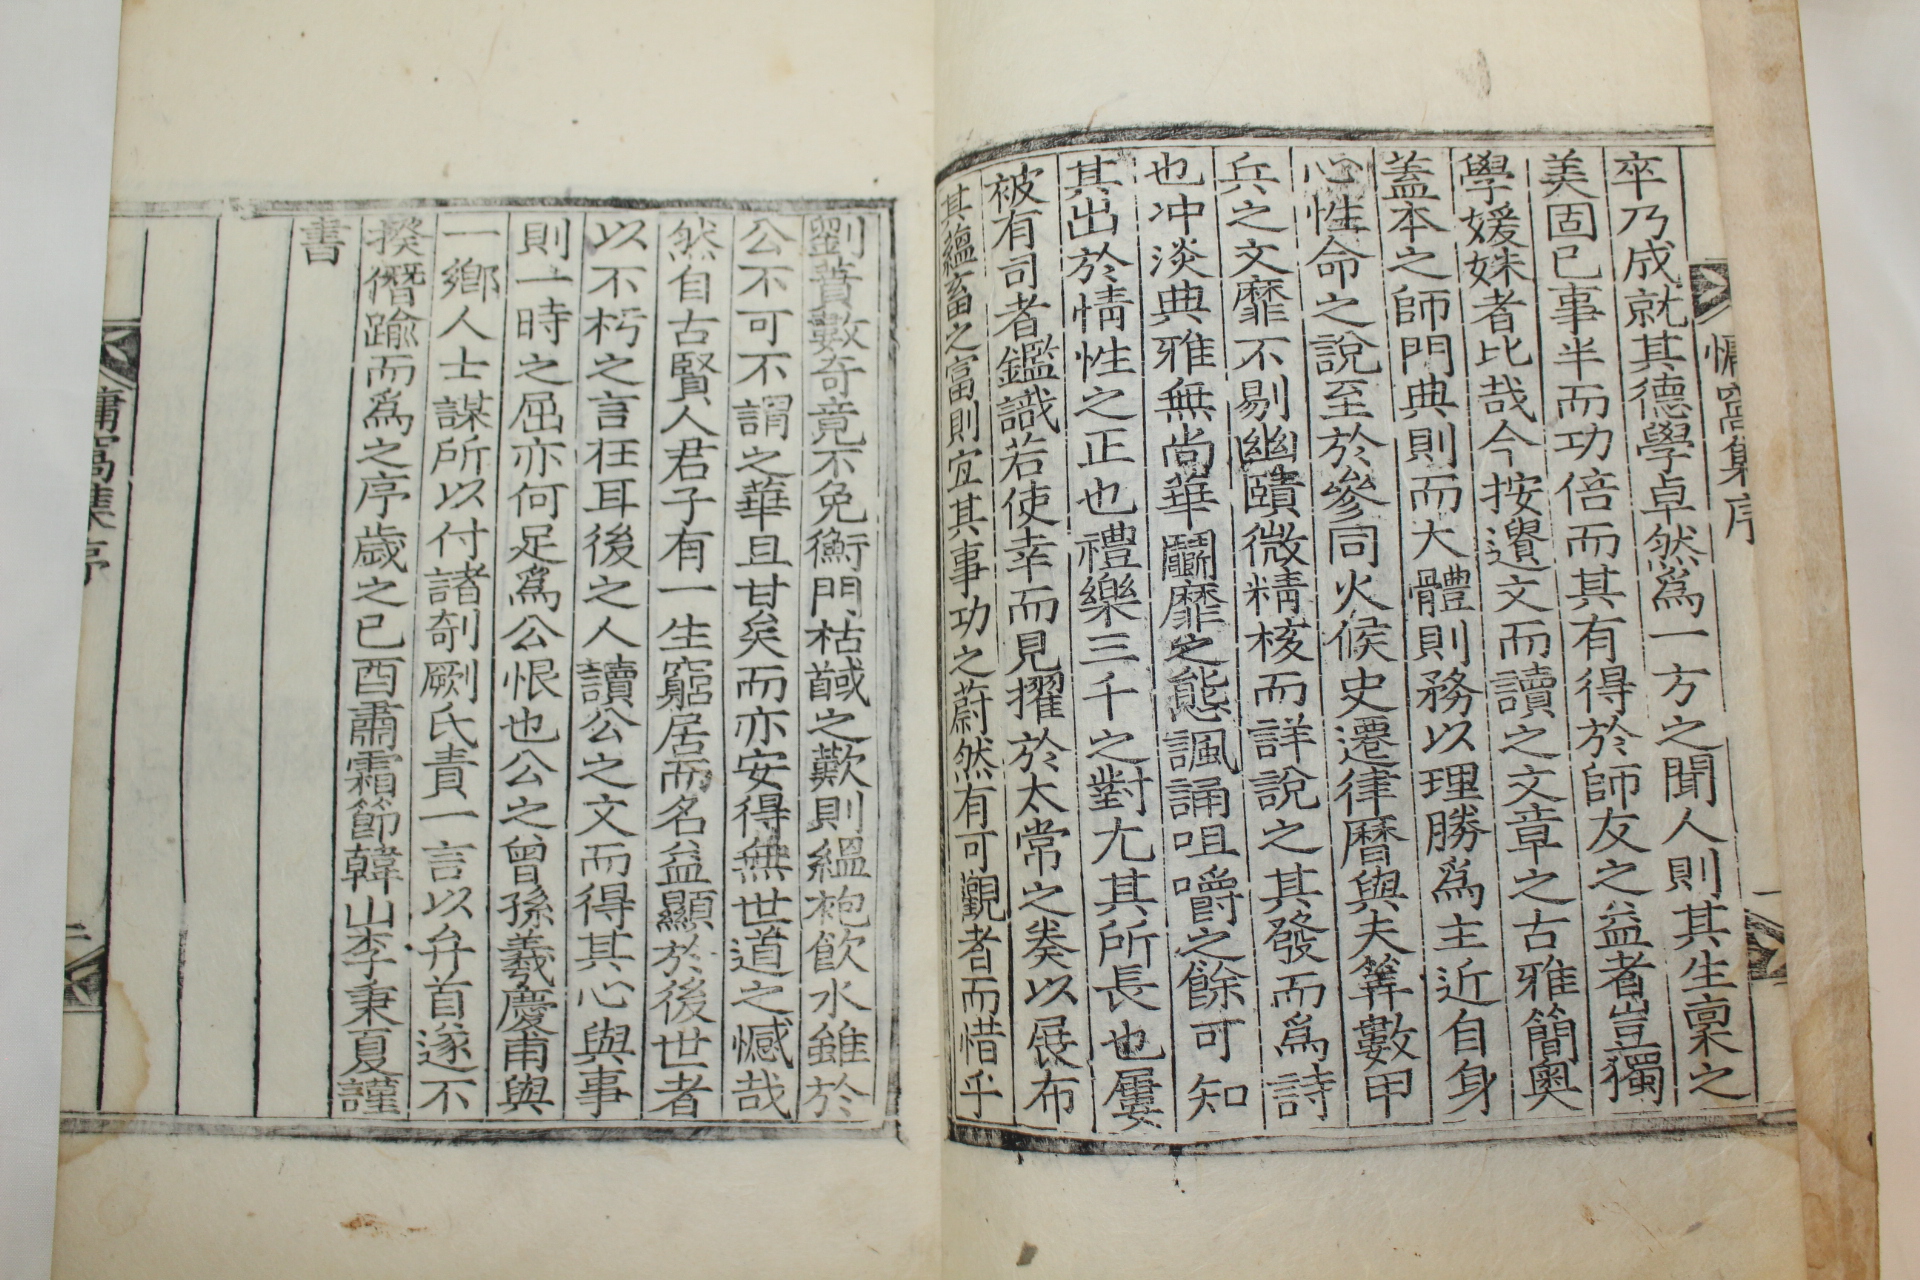 慵窩集序
卒乃成就其德學卓然爲一方之聞人則其生稟之
美固已事半而功倍而其有得於師友之益者豈獨
學媛姝者比哉今按遺文而讀之文章之古雅簡奧
蓋本之師門典則而大體則務以理勝爲主近自身
心性命之說至於參同火候史遷律曆與夫筭數甲
兵之文靡不剔幽賾微精核而詳說之其發而爲詩
也冲淡典雅無尚華鬪靡之態諷誦咀嚼之餘可知
其出於情性之正也禮樂三千之對尤其所長也屢
被有司者鑑識若使幸而見擢於太常之奏以展布
其蘊畜之富則宜其事功之蔚然有可觀者而惜乎
劉蕡數奇竟不免衡門枯馘之歎則縕袍飮水雖於
公不可不謂之華且甘矣而亦安得無世道之憾哉
然自古賢人君子有一生窮居而名益顯於後世者
以不朽之言在耳後之人讀公之文而得其心與事
則一時之屈亦何足爲公恨也公之曾孫羲慶甫與
一鄕人士謀所以付諸剞劂氏責一言以弁首遂不
揆僭踰而爲之序歲之己酉肅霜節韓山李秉夏謹
書
慵窩集序
二